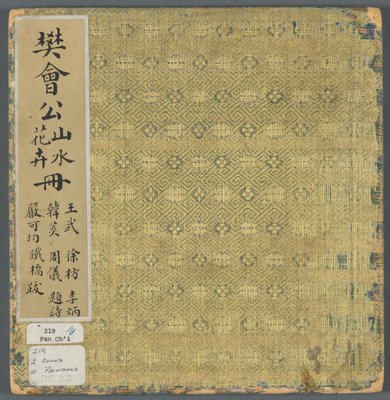 樊會公山水花卉冊
王武 徐枋 李炳
韓菼 周儀 題詩
嚴可均鐵橋跋
219
Fan Ch'i
219
2 COVERS
10 PAINTINGS